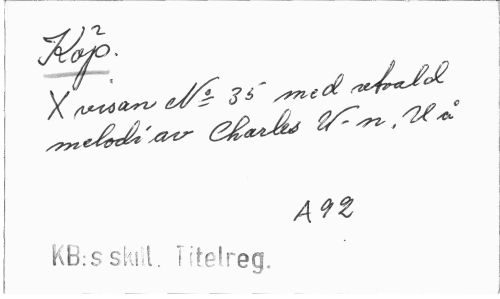 Kop².
X visan Nº 35 med utvald
melodi av Charles W-n. U å
A 92
KB:s skill. Titelreg.